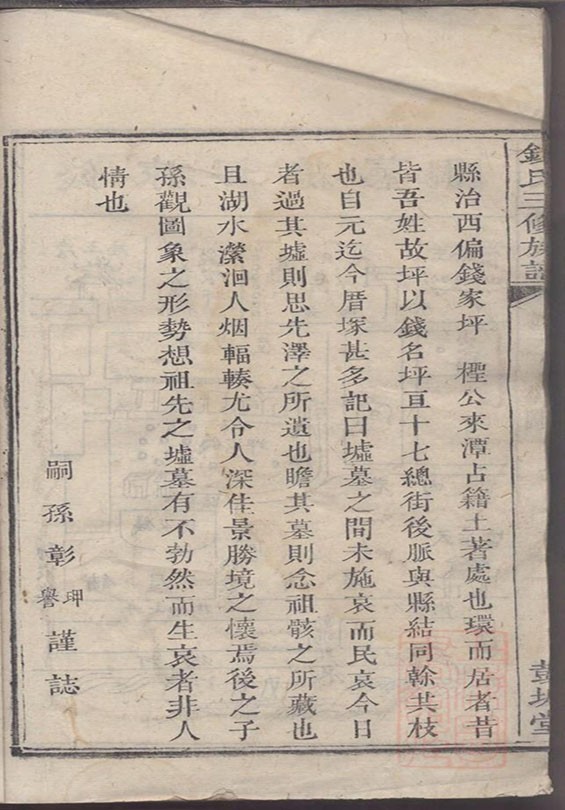 錢氏三修族譜
彭城堂
縣治西偏錢家坪　檉公來潭占籍土著處也環而居者昔
皆吾姓故坪以錢名坪亘十七總街後脈與縣結同榦共枝
也自元迄今厝塚甚多記曰墟墓之間未施哀而民哀今日
者過其墟則思先澤之所遺也瞻其墓則念祖骸之所藏也
且湖水瀠洄人烟輻輳尤令人深佳景勝境之懷焉後之子
孫觀圖象之形勢想祖先之墟墓有不勃然而生哀者非人
情也
嗣孫彰珇譽謹誌